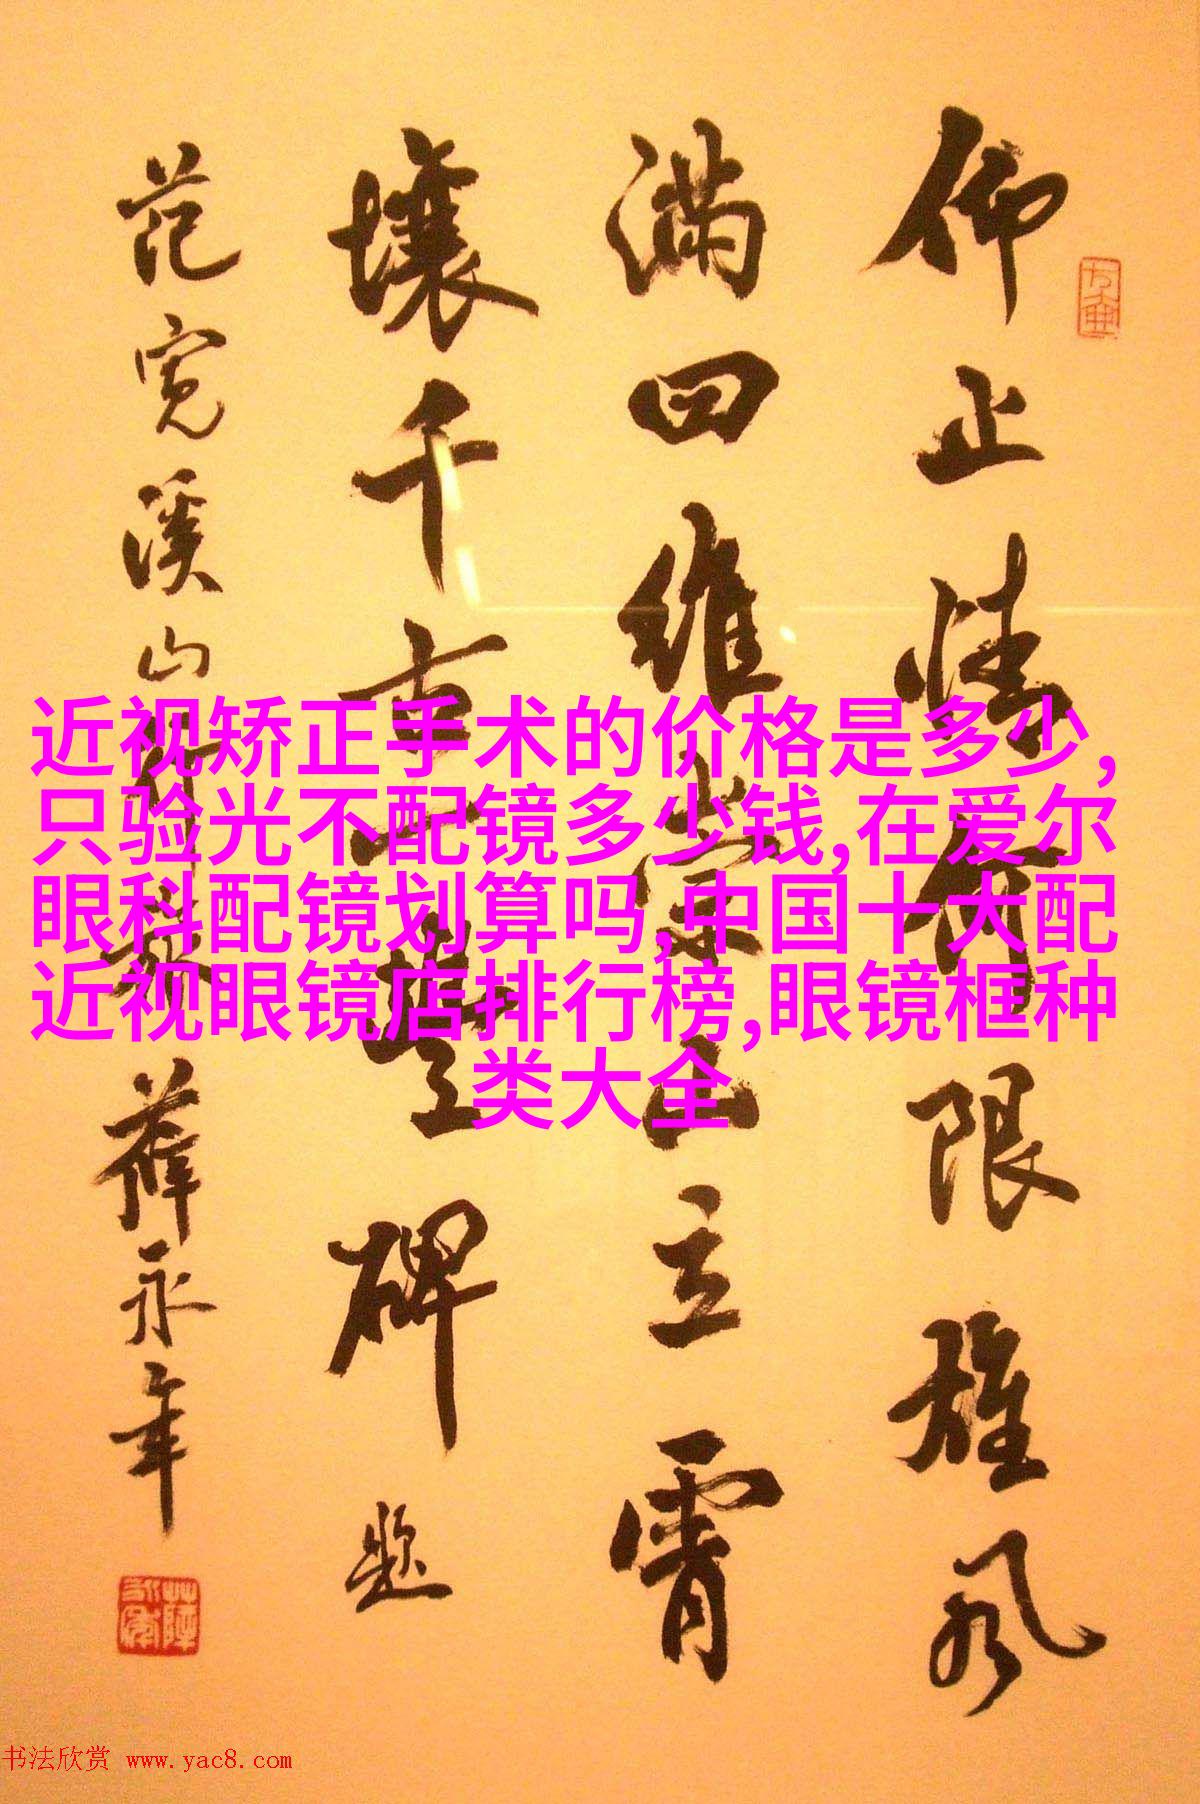 仰止情何限雄风
满四维崇山立霄
壤千丰碑 题
范宽溪山行旅 薛永年
近视矫正手术的价格是多少,
只验光不配镜多少钱,在爱尔
眼科配镜划算吗,中国十大配
近视眼镜店排行榜,眼镜框种
类大全
书法欣赏 www.yac8.com